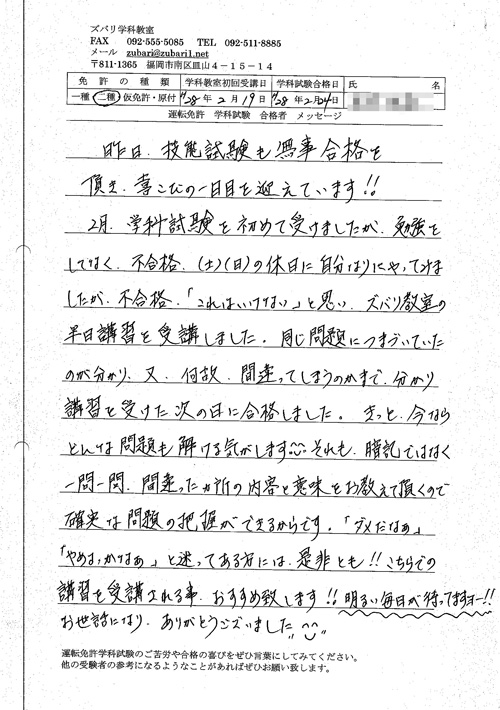 ズバリ学科教室
FAX 092-555-5085 TEL 092-511-8885
メール zubari@zubari1.net
〒811-1365 福岡市南区皿山4-15-14
免許の種類 学科教室初回受講日 学科試験合格日 氏 名
一種 二種 仮免許・原付 H28年2月19日 H28年2月24日
運転免許 学科試験 合格者 メッセージ
昨日、技能試験も無事合格を
頂き、喜こびの一日目を迎えています!!
2月、学科試験を初めて受けましたが、勉強を
してなく、不合格、(土)(日)の休日に自分なりにやってみま
したが、不合格、「これはいけない」と思い、ズバリ教室の
半日講習を受講しました。同じ問題につまづいていた
のが分かり、又、何故、間違ってしまうのかまで、分かり
講習を受けた次の日に合格しました。きっと、今なら
どんな問題も解ける気がします それも、暗記ではなく
一問一問、間違ったヵ所の内容と意味をお教えて頂くので
確実な問題の把握ができるからです。「ダメだなぁ」
「やめよっかなぁ」と迷ってある方には、是非とも!!こちらでの
講習を受講される事、おすすめ致します!!明るい毎日が待ってますヨー!!
お世話になり、ありがとうございました
運転免許学科試験のご苦労や合格の喜びをぜひ言葉にしてみてください。
他の受験者の参考になるようなことがあればぜひお願い致します。